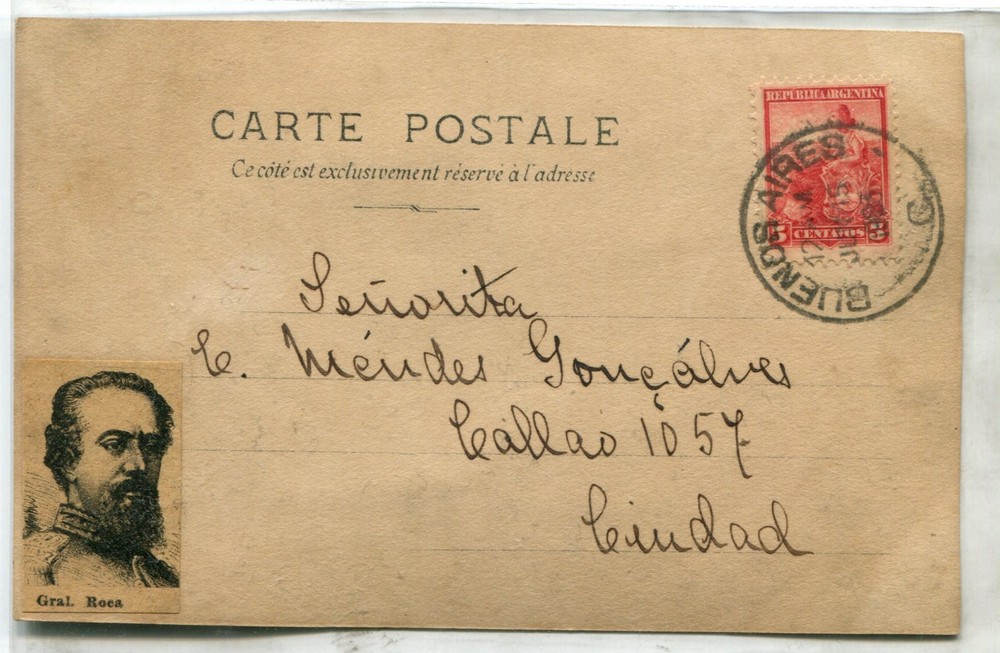 CARTE POSTALE
Ce côté est exclusivement réservé à l'adresse
REPUBLICA ARGENTINA
5 CENTAVOS 5
BUENOS AIRES
12 M
15
Señorita
E. Méndes Gonçálves
Callao 1057
Ciudad
Gral. Roca